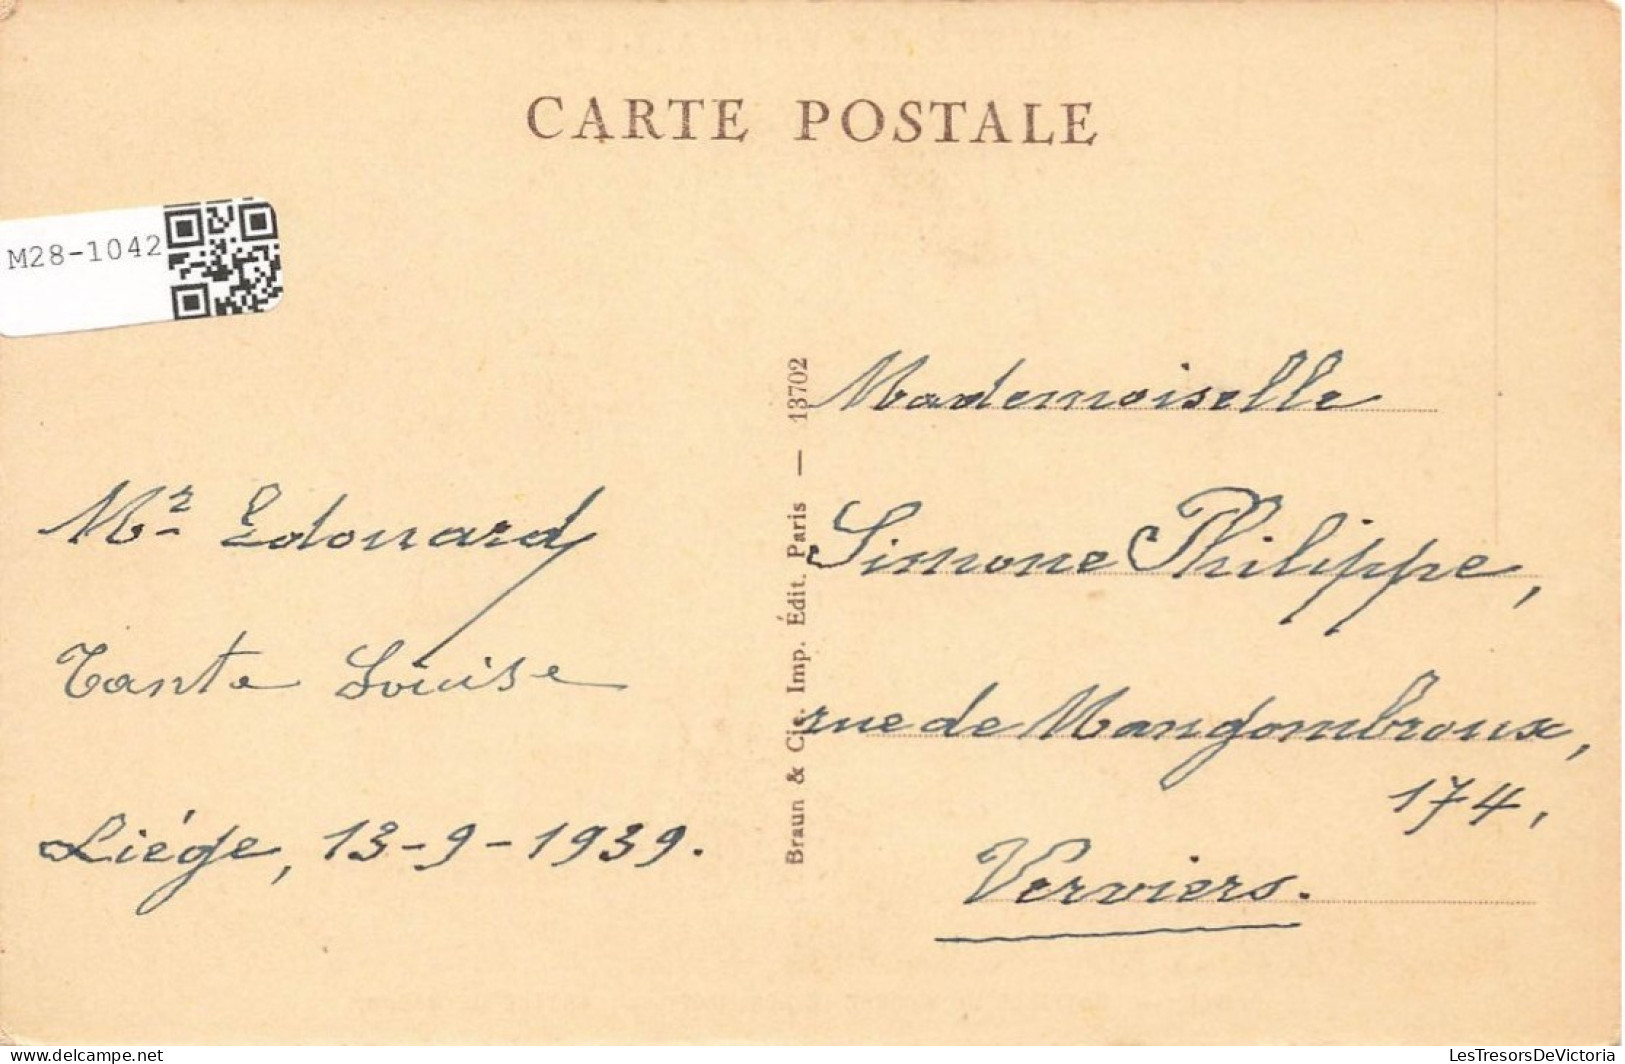 CARTE POSTALE
M28-1042
Mr Edouard
Tante Louise
Liége, 13-9-1939.
Braun & Cie. Imp. Édit. Paris — 13702
Mademoiselle
Simone Philippe,
rue de Mangombroux,
174,
Verviers.
delcampe.net
LesTresorsDeVictoria